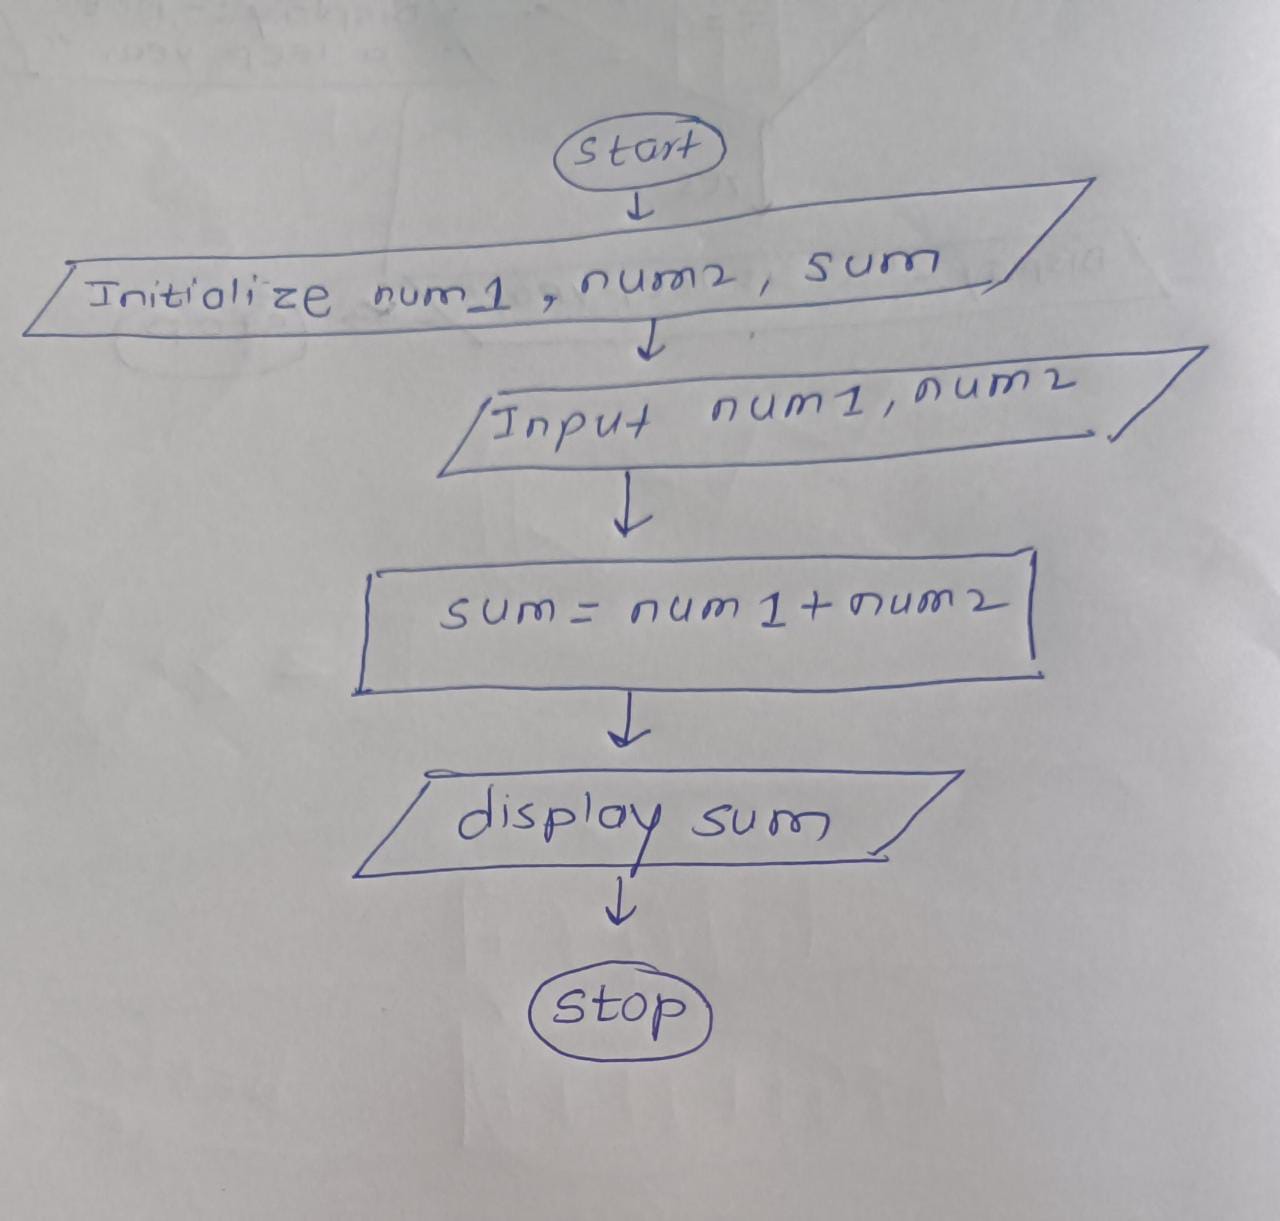 start
Initialize num1, num2, sum
Input num1, num2
sum = num1 + num2
display sum
stop